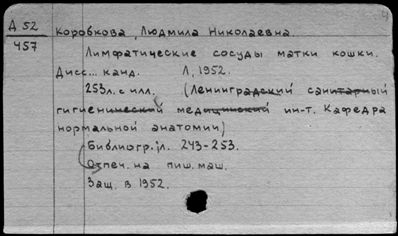 Д 52
457
Коробкова, Людмила Николаевна.
Лимфатические сосуды матки кошки.
Дисс... канд. Л, 1952.
253л. с илл. (Ленинградский санитарный
гигиенический медицинский ин-т. Кафедра
нормальной анатомии)
Библиогр.: л. 243-253.
Отпеч. на пиш. маш.
Защ. в 1952.